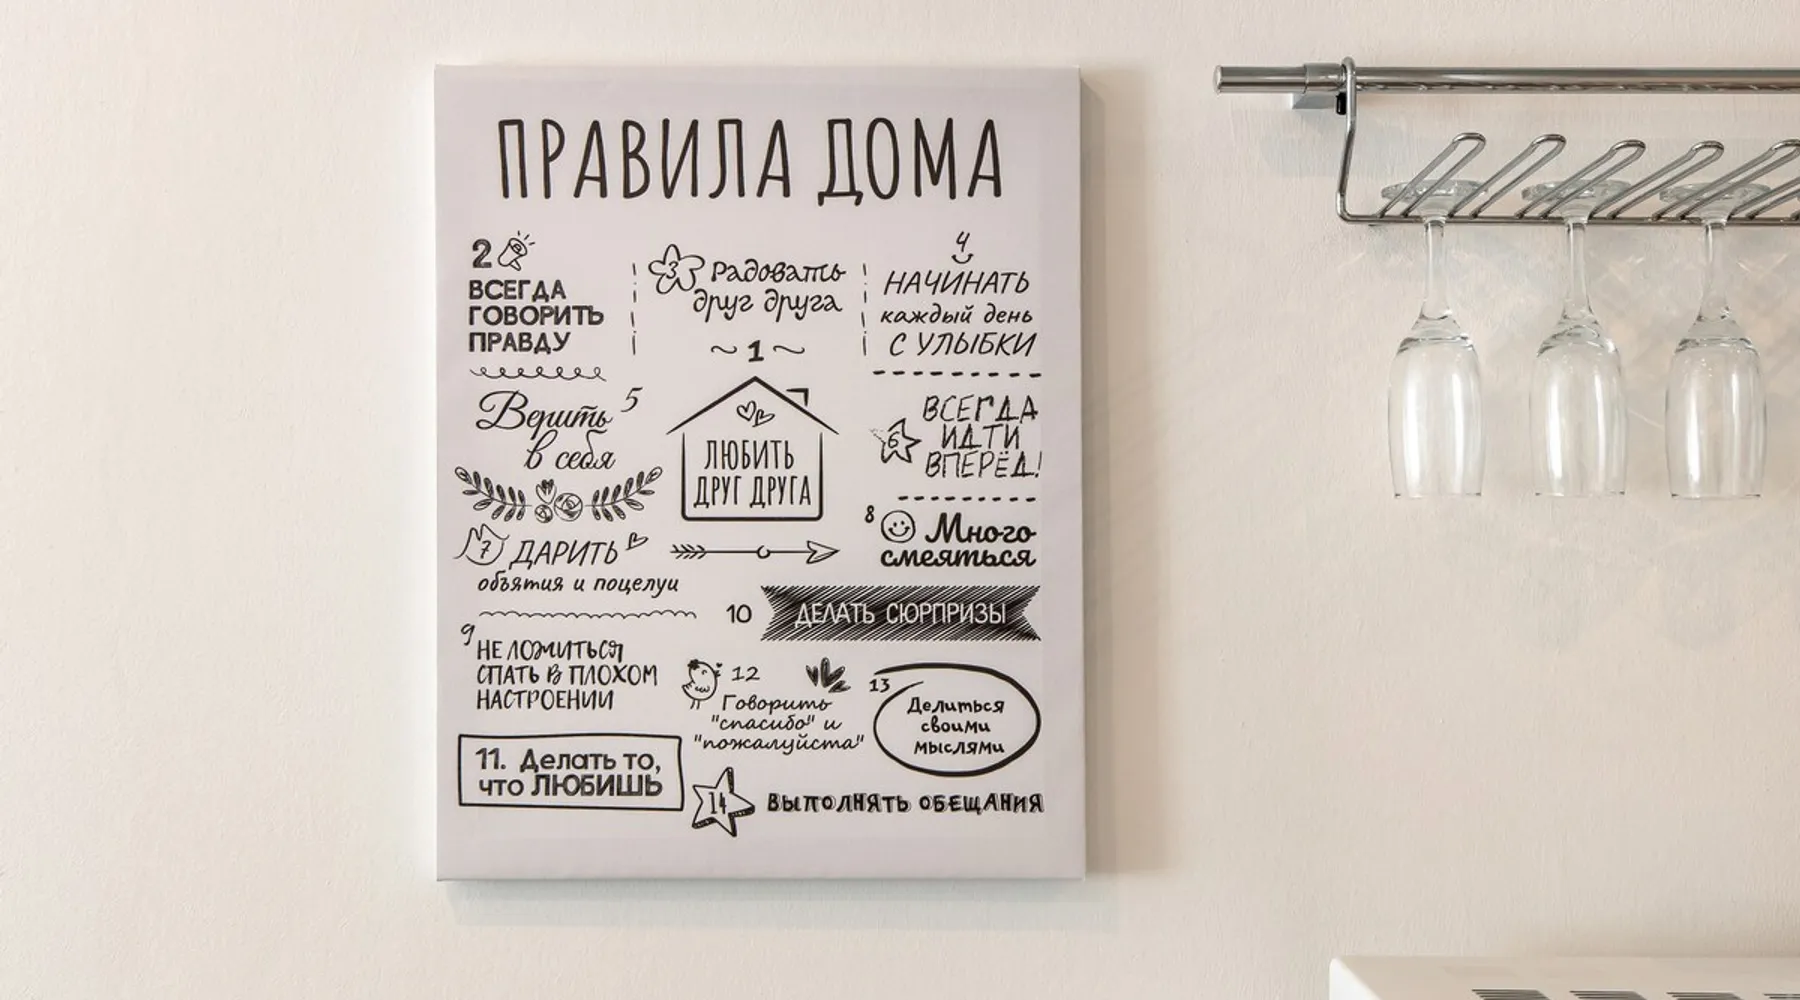 ПРАВИЛА ДОМА
2
ВСЕГДА
ГОВОРИТЬ
ПРАВДУ
3 Радовать
друг друга
4
НАЧИНАТЬ
каждый день
С УЛЫБКИ
~1~
ЛЮБИТЬ
ДРУГ ДРУГА
Верить 5
в себя
6 ВСЕГДА
ИДТИ
ВПЕРЁД!
7 ДАРИТЬ
объятия и поцелуи
8 Много
смеяться
9 НЕ ЛОЖИТЬСЯ
СПАТЬ В ПЛОХОМ
НАСТРОЕНИИ
10 ДЕЛАТЬ СЮРПРИЗЫ
11. Делать то,
что ЛЮБИШЬ
12
Говорить
"спасибо" и
"пожалуйста"
13
Делиться
своими
мыслями
14 ВЫПОЛНЯТЬ ОБЕЩАНИЯ